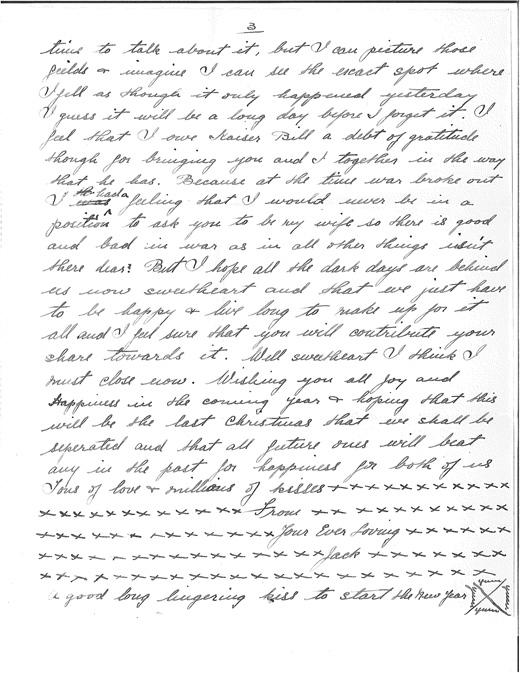 3
time to talk about it, but I can picture those
feilds & imagine I can see the exact spot where
I fell as though it only happened yesterday
I guess it will be a long day before I forget it. I
feel that I owe Kaiser Bill a debt of gratitude
though for bringing you and I together in the way
that he has. Because at the time war broke out
I was had a feeling that I would never be in a
position to ask you to be my wife so there is good
and bad in war as in all other things isn't
there dear? But I hope all the dark days are behind
us now sweetheart and that we just have
to be happy & live long to make up for it
all and I feel sure that you will contribute your
share towards it. Well sweetheart I think I
must close now. Wishing you all joy and
Happiness in the coming year & hoping that this
will be the last Christmas that we shall be
seperated and that all future ones will beat
any in the past for happiness for both of us
Tons of love & millions of kisses x x x x x x x x x x x
x x x x x x x x x x x x From x x x x x x x x x x x
x x x x x x x x x x x x Your Ever Loving x x x x x x
x x x x x x x x x x x x x x Jack x x x x x x x x
x x x x x x x x x x x x x x x x x x x x x x x
A good long lingering kiss to start the New Year X
yum
yum